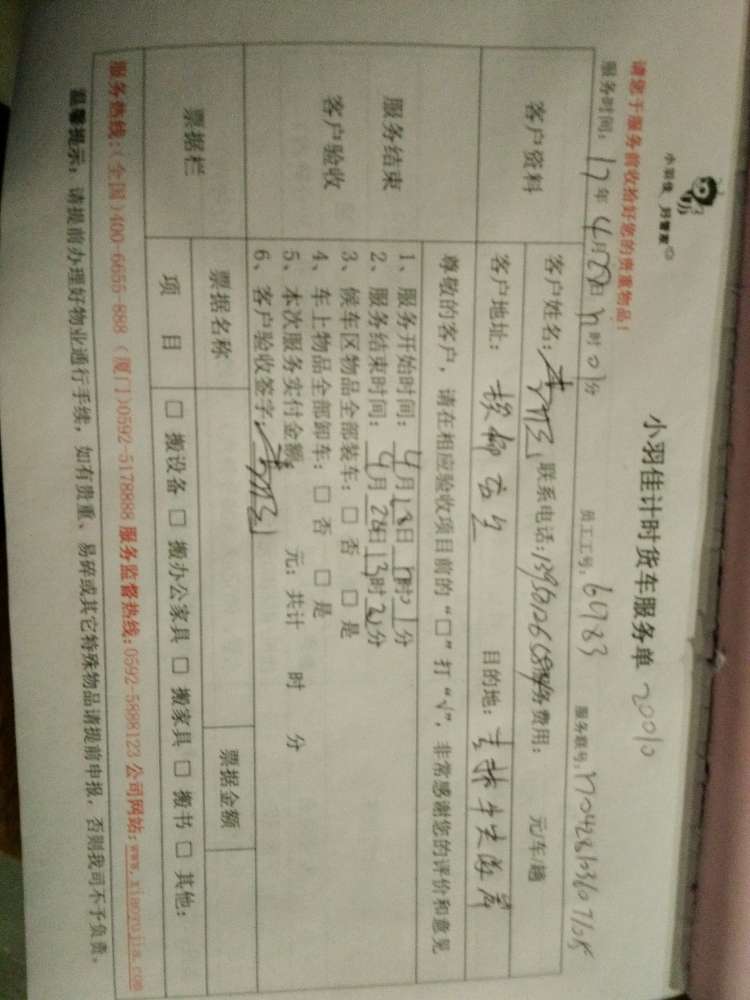 小羽佳 好管家
小羽佳计时货车服务单 20010
请您于服务前收拾好您的贵重物品!
服务时间: 17年 4月 日 时 01分 员工工号: 6983 服务联号:
客户资料 客户姓名: 联系电话: 服务费用: 元/车/趟
客户地址: 目的地:
服务结束 客户验收
尊敬的客户,请在相应验收项目前的“□”打“√”,非常感谢您的评价和意见
1、服务开始时间: 4月28日 时 分
2、服务结束时间: 4月28日13时 分
3、候车区物品全部装车: □ 否 □ 是
4、车上物品全部卸车: □ 否 □ 是
5、本次服务实付金额 元; 共计 时 分
6、客户验收签字:
票据栏 票据名称 票据金额
项 目 □ 搬设备 □ 搬办公家具 □ 搬家具 □ 搬书 □ 其他:
服务热线:(全国)400-6655-888 (厦门)0592-5178888 服务监督热线:0592-5888123 公司网站:www.xiaoyujia.com
温馨提示: 请提前办理好物业通行手续, 如有贵重、易碎或其它特殊物品请提前申报, 否则我司不予负责。